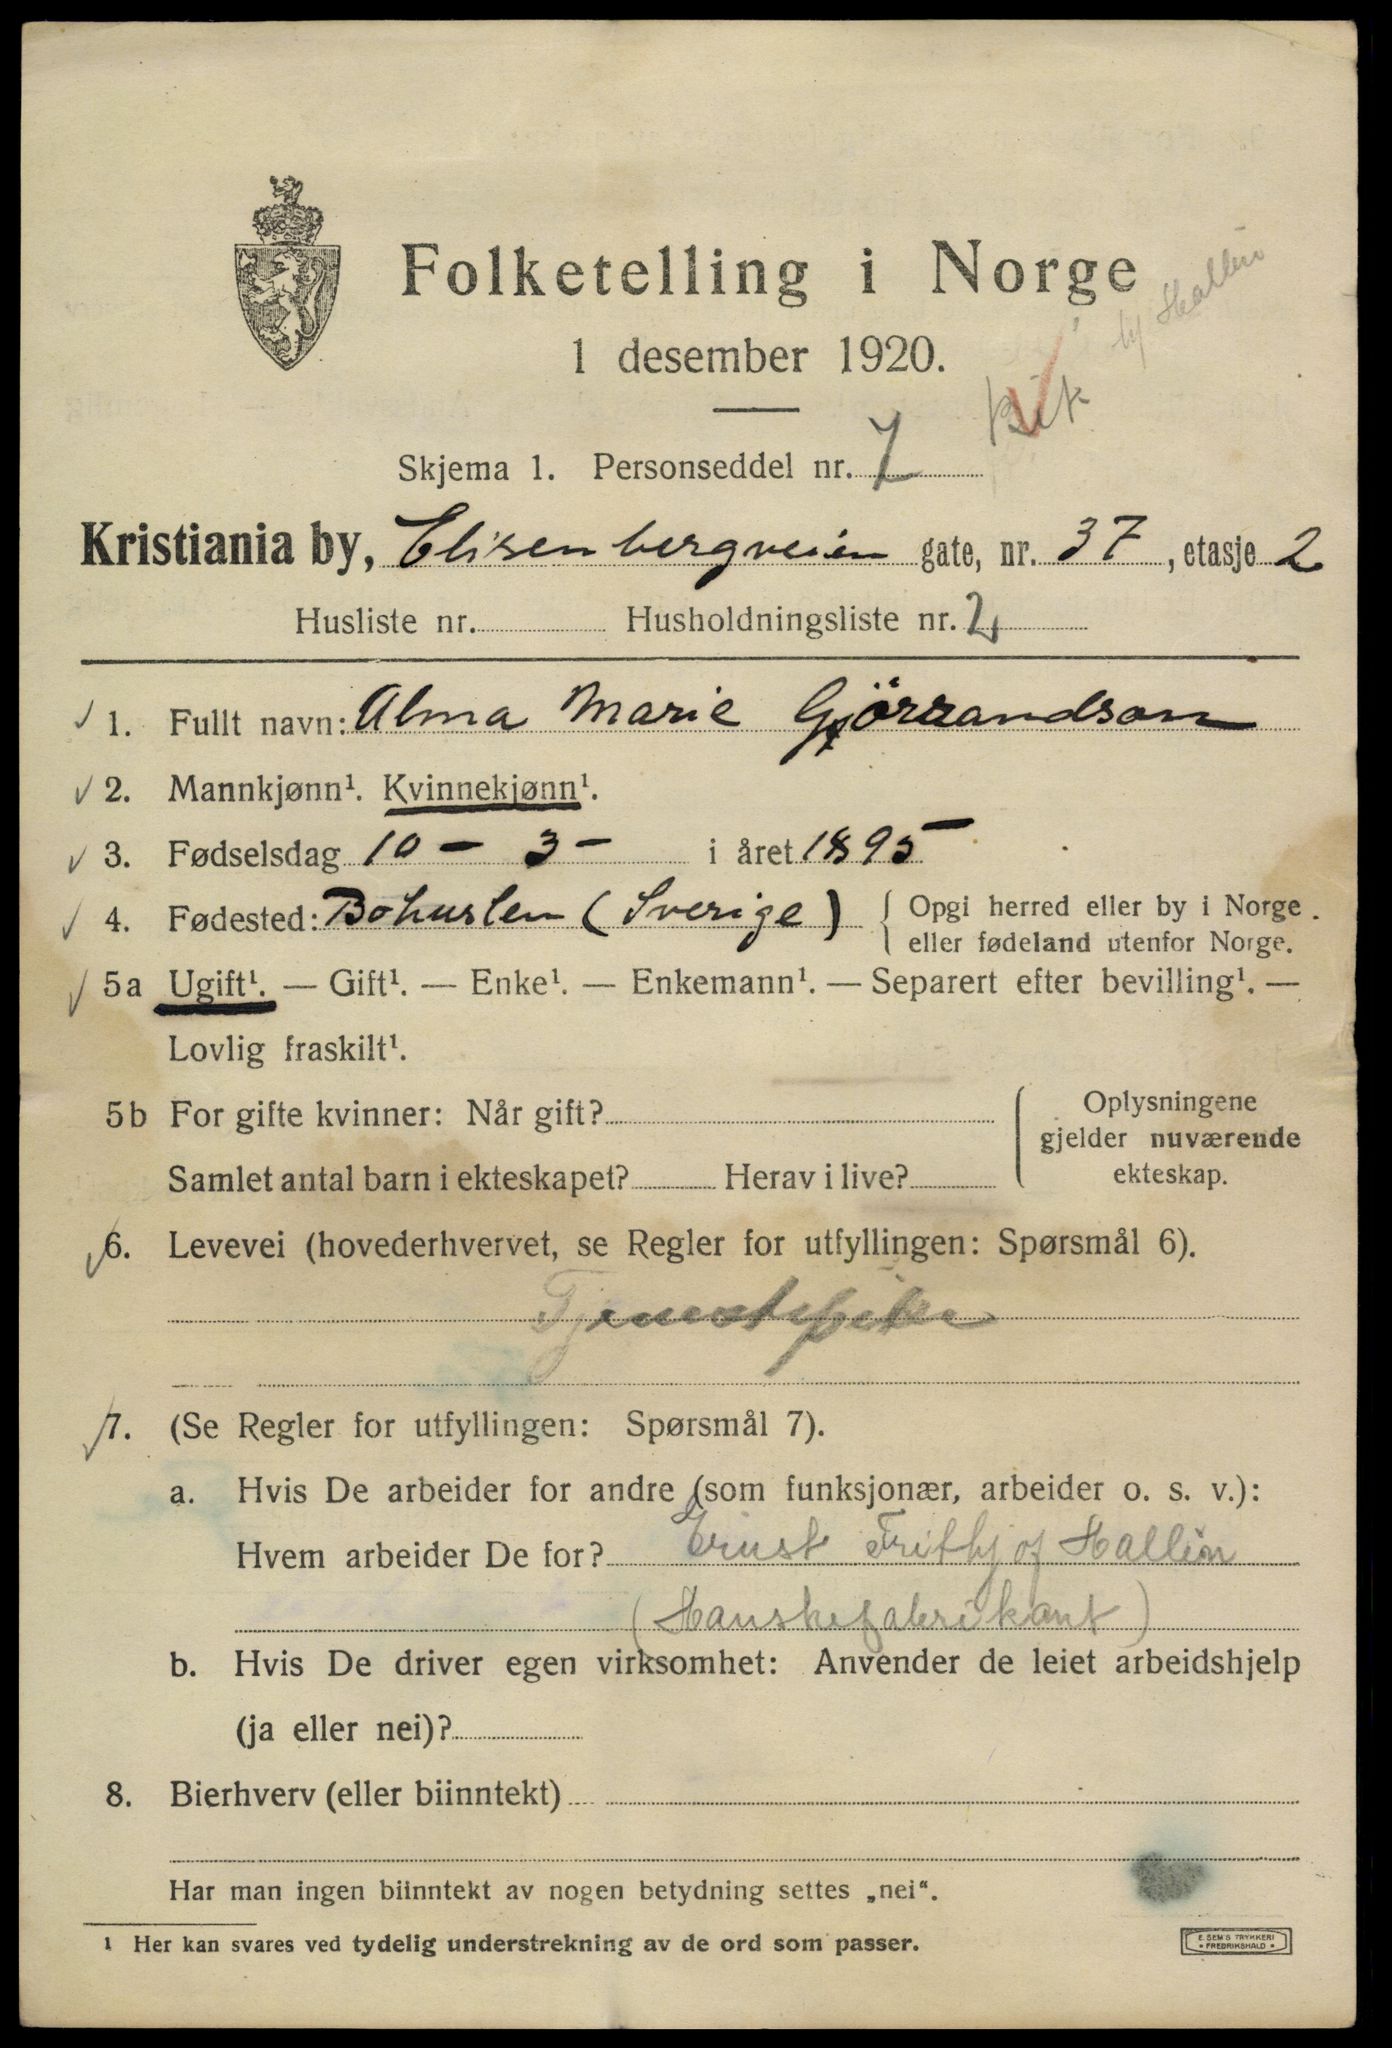 Folketelling i Norge
hj Hallin
1 desember 1920.
Skjema 1. Personseddel nr. 7
Kristiania by, Elisenbergveien gate, nr. 37, etasje 2
Husliste nr. Husholdningsliste nr. 2
1. Fullt navn: Alma Marie Gjörrandson
2. Mannkjønn¹. Kvinnekjønn¹.
3. Fødselsdag 10 - 3 - i året 1895
4. Fødested: Bohuslen (Sverige) Opgi herred eller by i Norge
eller fødeland utenfor Norge.
5a Ugift¹. — Gift¹. — Enke¹. — Enkemann¹. — Separert efter bevilling¹. —
Lovlig fraskilt¹.
5b For gifte kvinner: Når gift? Oplysningene
gjelder nuværende
ekteskap.
Samlet antal barn i ekteskapet? Herav i live?
6. Levevei (hovederhvervet, se Regler for utfyllingen: Spørsmål 6).
Tjenestepike
7. (Se Regler for utfyllingen: Spørsmål 7).
a. Hvis De arbeider for andre (som funksjonær, arbeider o. s. v.):
Hvem arbeider De for? Ernst Frithjof Hallin
(Hanskefabrikant)
b. Hvis De driver egen virksomhet: Anvender de leiet arbeidshjelp
(ja eller nei)?
8. Bierhverv (eller biinntekt)
Har man ingen biinntekt av nogen betydning settes „nei“.
1 Her kan svares ved tydelig understrekning av de ord som passer.
E. SEM'S TRYKKERI
• FREDRIKSHALD •